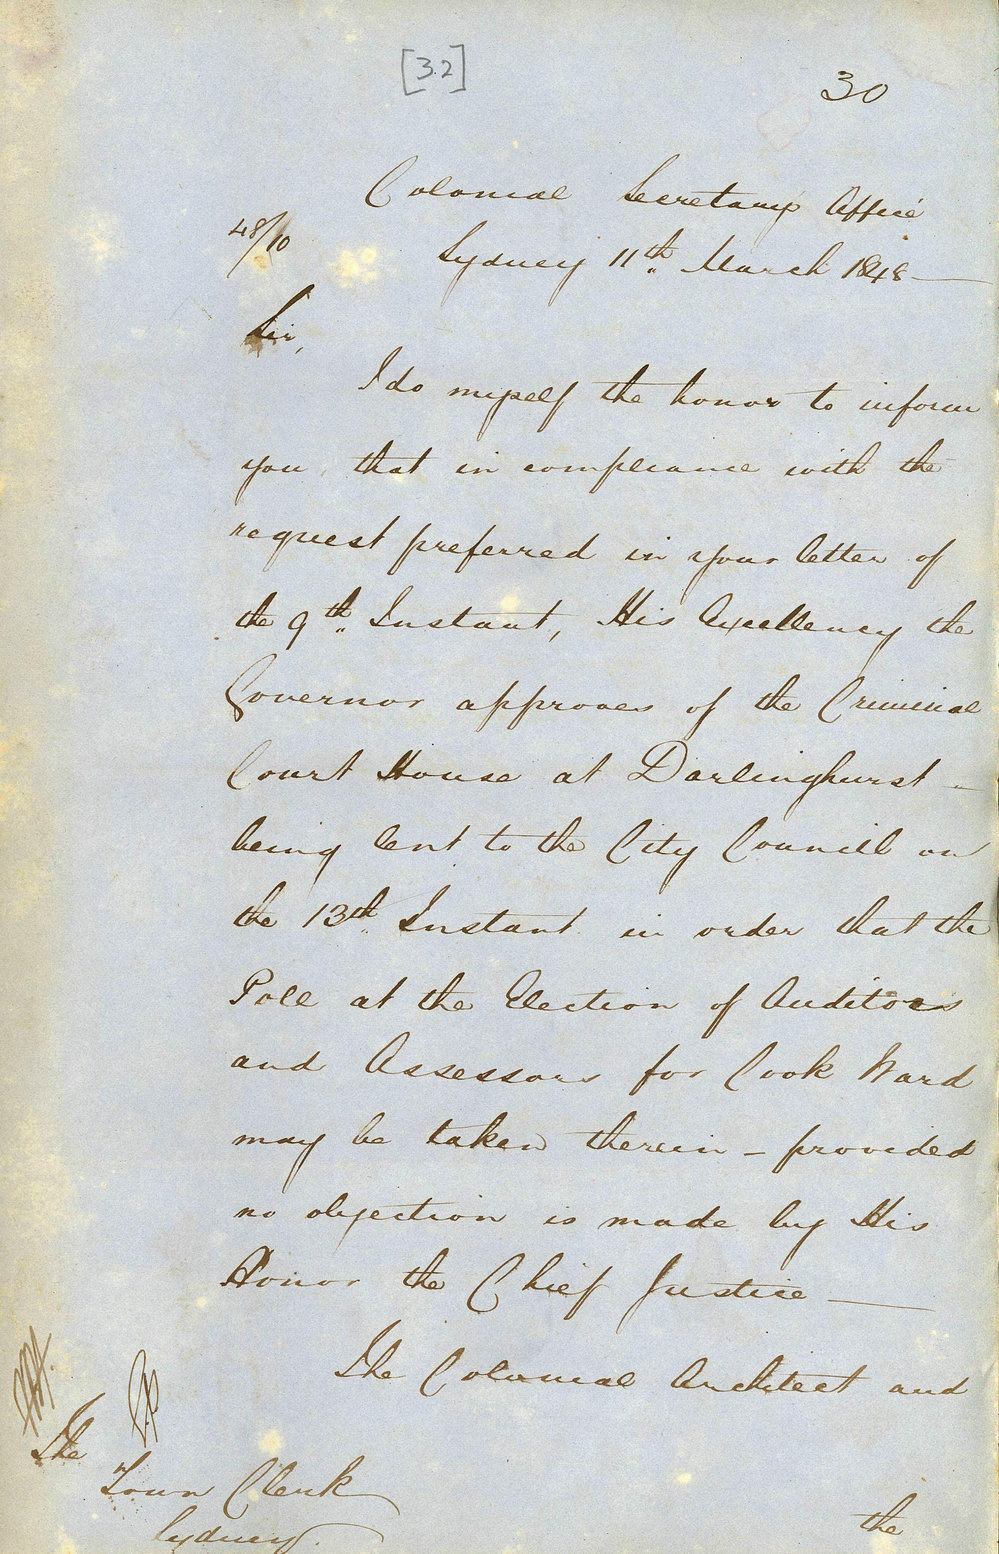 [32]
30
Colonial Secretary's Office
48/10
Sydney 11th March 1848
Sir,
I do myself the honor to inform
you that in compliance with the
request preferred in your letter of
the 9th Instant, His Excellency the
Governor approves of the Criminal
Court House at Darlinghurst
being lent to the City Council on
the 13th Instant in order that the
Poll at the Election of Auditors
and Assessors for Cook Ward
may be taken therein - provided
no objection is made by His
Honor the Chief Justice
The Colonial Architect and
The
Town Clerk
Sydney.
the